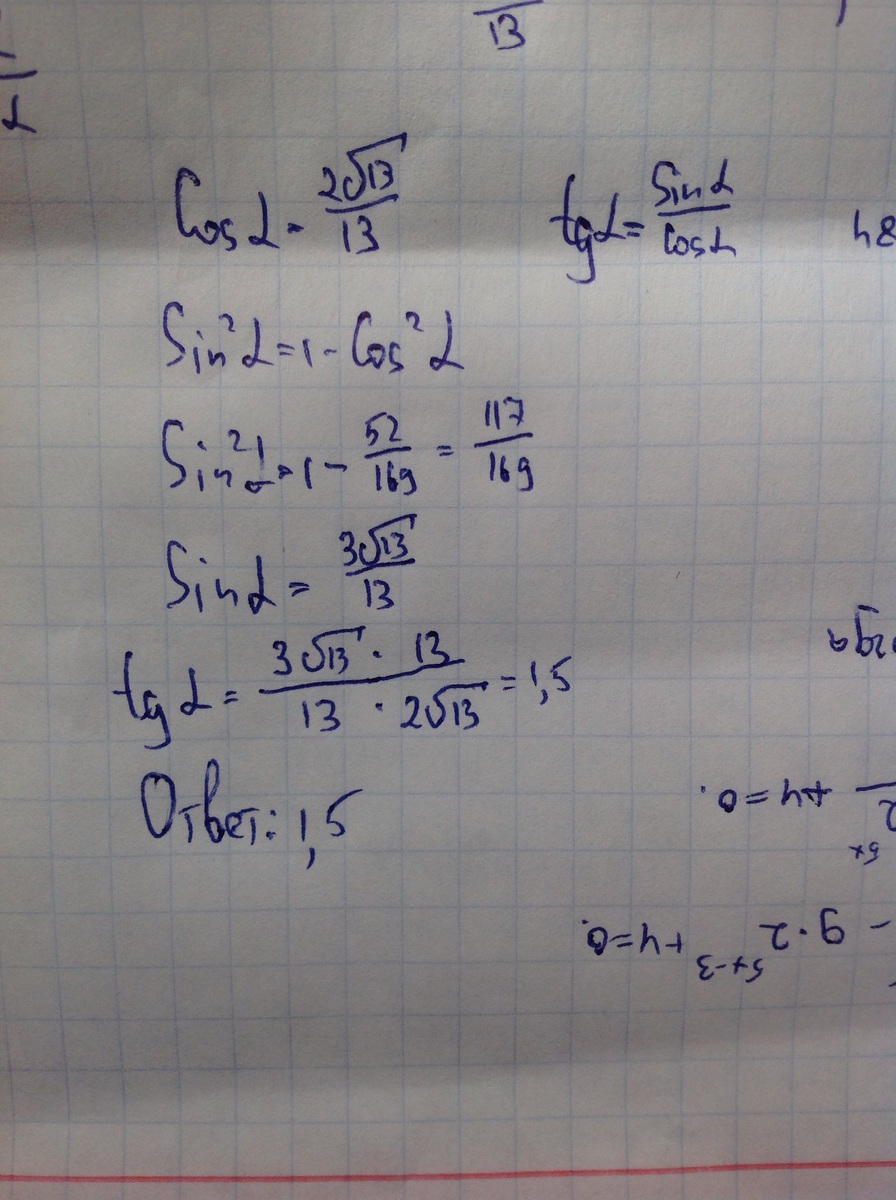 13
Cosα = 2√13/13
tgα = Sinα/Cosα
Sin²α = 1 - Cos²α
Sin²α = 1 - 52/169 = 117/169
Sinα = 3√13/13
tgα = 3√13 · 13/13 · 2√13 = 1,5
Ответ: 1,5
- 9·2^5x-3 +4=0.
+4=0.